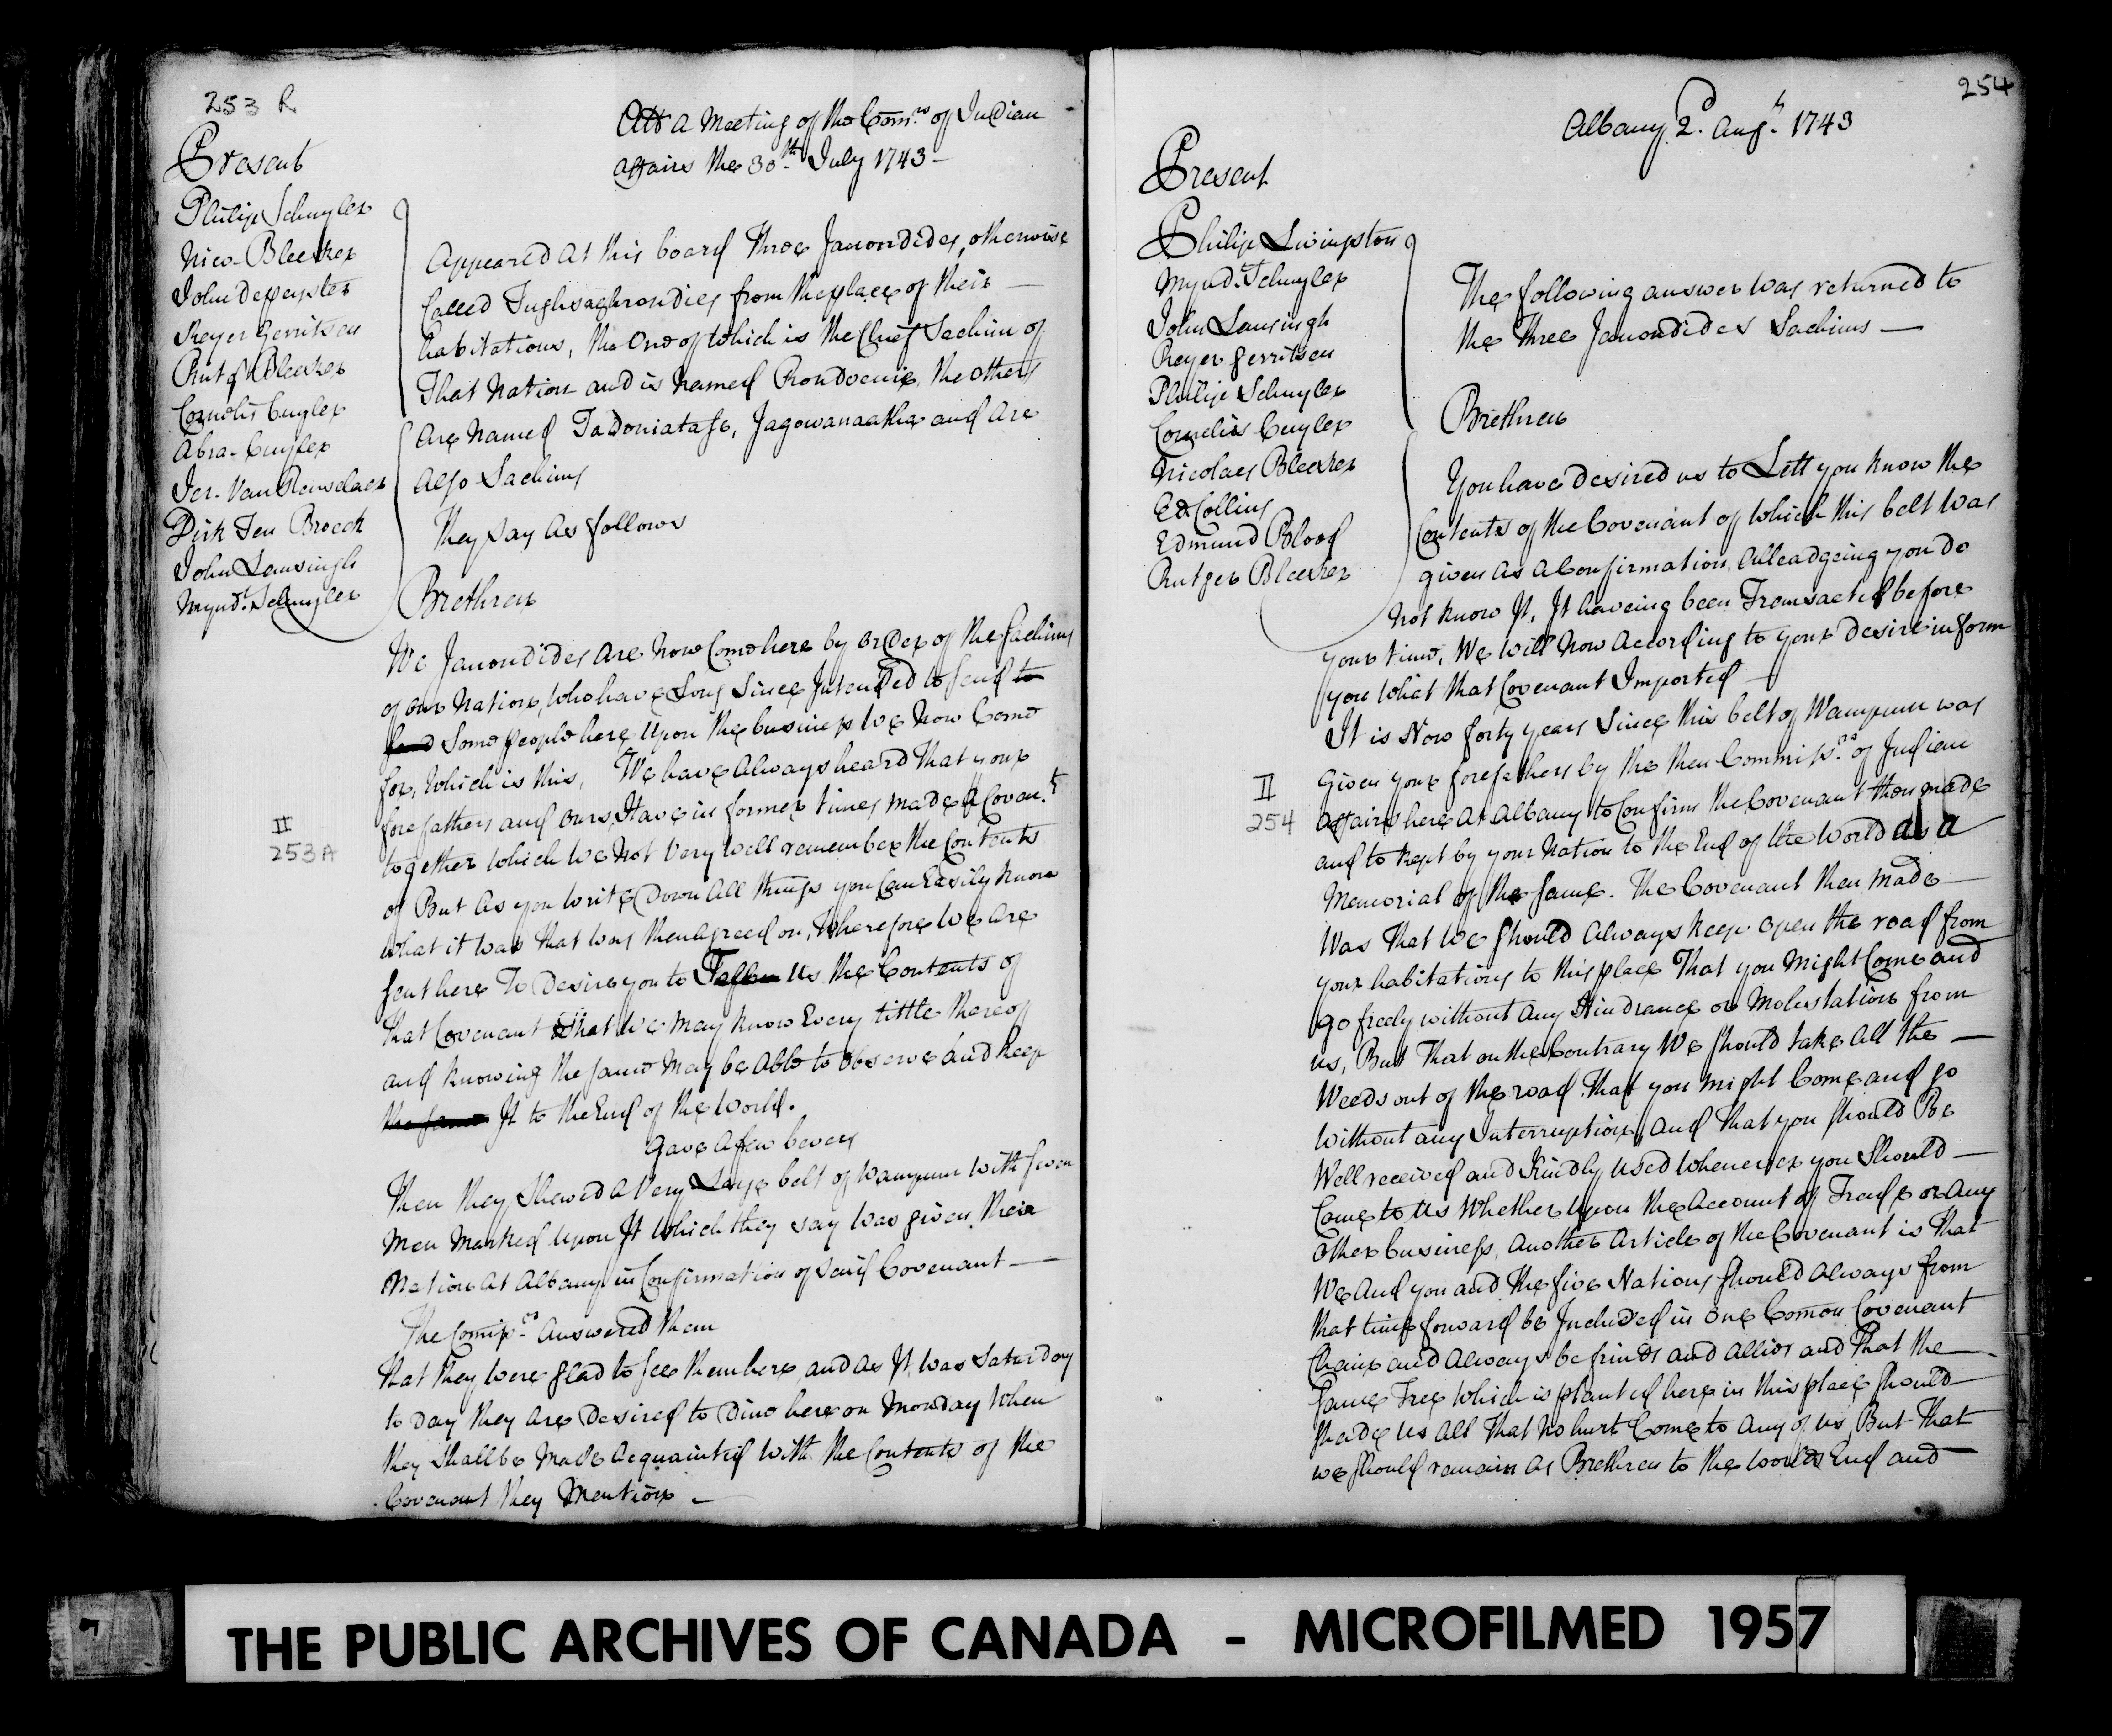 253 R
Att a Meeting of the Com.rs of Indian
affairs the 30.th July 1743 -
Present
Philip Schuyler
Nico. Bleecker
John depeyster
Reyer Gerritsen
Rutgr Bleecker
Cornelis Cuyler
Abra. Cuyler
Jer. Van Renselaer
Dirk Ten Broeck
John Lansingh
Mynd.t Schuyler
Appeared at this board three Janondides, otherwise
Called Tughsaghrondies from the place of their
habitations, the One of which is the Chief Sachim of
That Nation and is named Rondoenie, the others
are Named Tadoniatase, Jagowanaatha and are
also Sachims
They say as follows
Brethren
We Janondides are Now Come here by order of the Sachims
of our Nation, who have Long Since Intended to send to
send Some people here upon the business we now Come
for, Which is this, We have always heard That your
forefathers and ours, Have in former times made a Coven.t
together which we not Very well remember the Contents
of But as you write Down all things you Can Easily know
what it was that was then agreed on, Wherefore we are
sent here To Desire you to us the Contents of
that Covenant that we may know Every tittle thereof
and knowing the same may be able to observe and keep
the same It to the End of the world.
Gave a few bevers
Then they Shewed a Very Large belt of Wampum with seven
Men Marked upon It which they say was given their
Nation at Albany in Confirmation of said Covenant
The Comiss.rs answered them
that they were glad to see them here, and as It was Saturday
to day they are Desired to Dine here on Monday when
they Shall be Made acquainted with the Contents of the
Covenant they Mention -
II
253A
254
Albany 2.d Augt. 1743
Present
Philip Livingston
Mynd.t Schuyler
John Lansingh
Reyer Gerritsen
Philip Schuyler
Cornelis Cuyler
Nicolaes Bleecker
Ed Collins
Edmund Blood
Rutger Bleecker
The following answer was returned to
the three Jenondides Sachims -
Brethren
You have desired us to Lett you know the
Contents of the Covenant of which this belt was
given as a Confirmation, alleadgeing you do
not know It, It haveing been Transacted before
your time, We will Now according to your desire inform
you What that Covenant Imported -
It is Now forty years Since this belt of Wampum was
Given your forefathers by the then Commiss.rs of Indian
affairs here at Albany to Confirm the Covenant then made
and to kept by your Nation to the End of the World as a
Memorial of the same. The Covenant then made
Was That we should always keep open the road from
your habitations to this place That you might Come and
go freely without any Hindrance or Molestation from
us, But That on the Contrary We should take all the
Weeds out of the road That you might Come and go
without any Interruption, and that you should Be
Well received and Kindly used whenever you Should
Come to us Whether upon the account of Trade or any
other business, another article of the Covenant is That
We and you and the five Nations should always from
that time forward be Included in one Comon Covenant
Chain and always be frinds and allies and That the
same Tree Which is planted here in this place should
shade us all That no hurt Come to any of us, But That
we should remain as Brethren to the worlds End and
II
254
THE PUBLIC ARCHIVES OF CANADA - MICROFILMED 1957